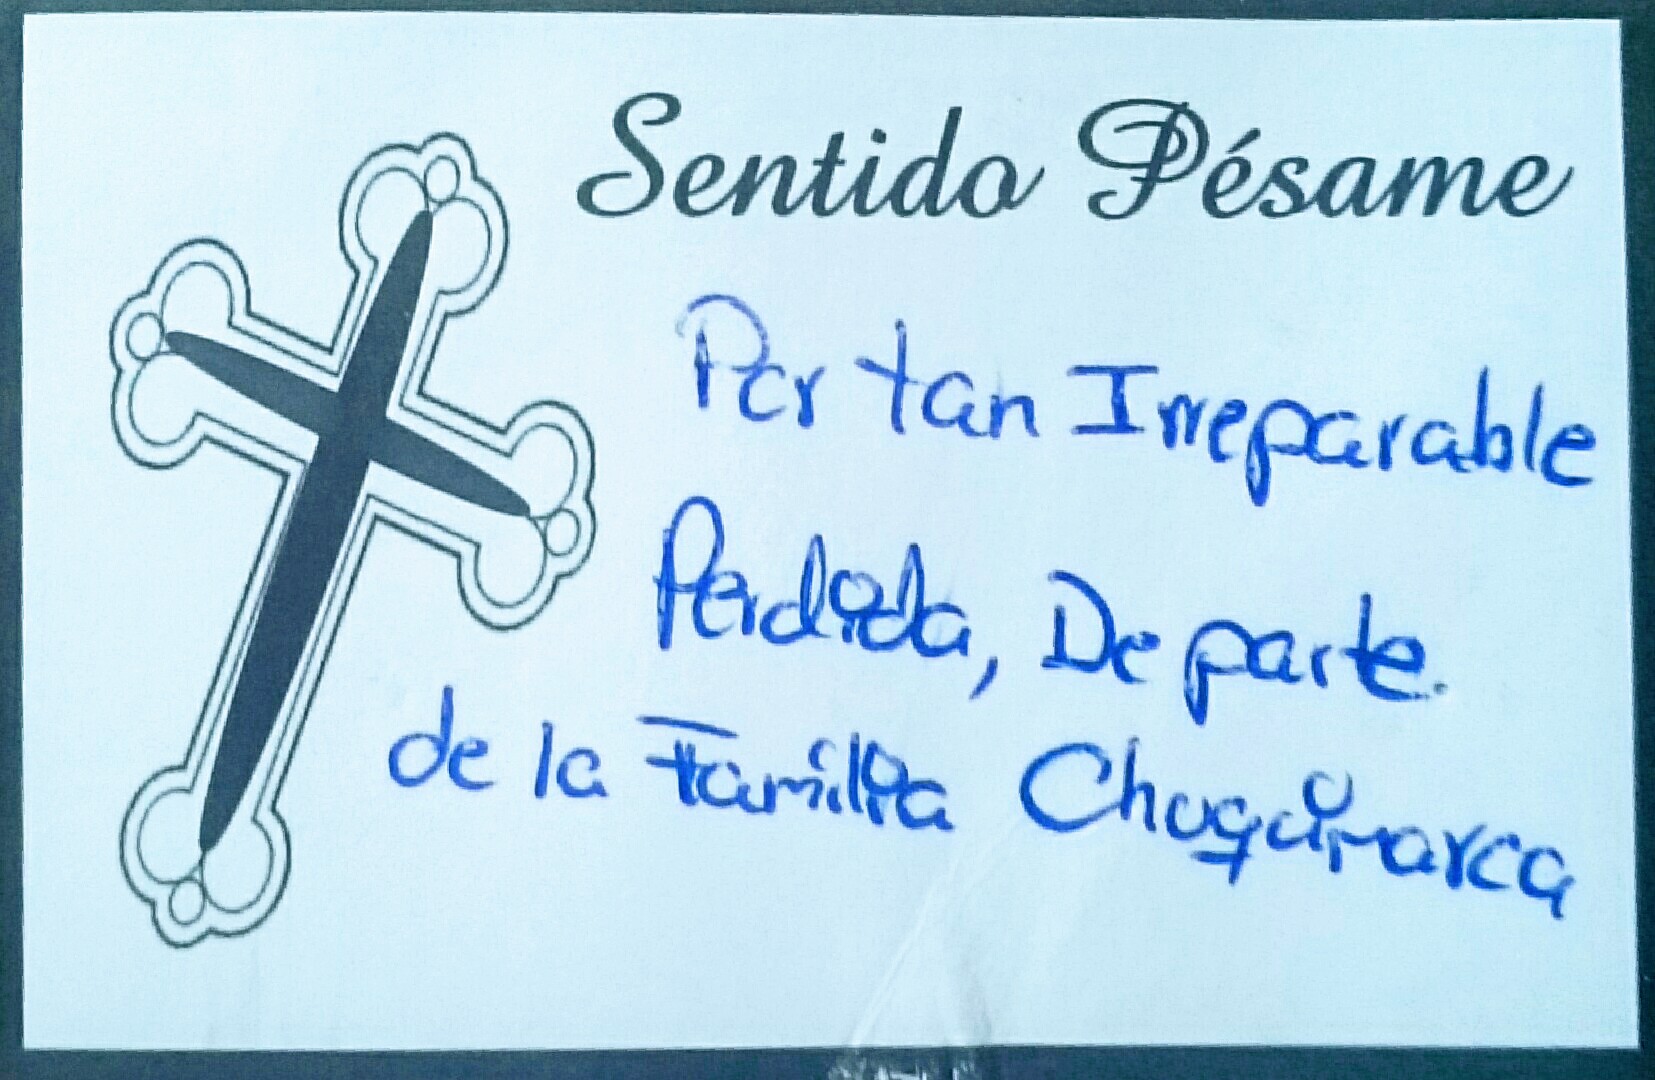 Sentido Pésame
Por tan Irreparable
Perdida, De parte.
de la Familia Chuquimarca